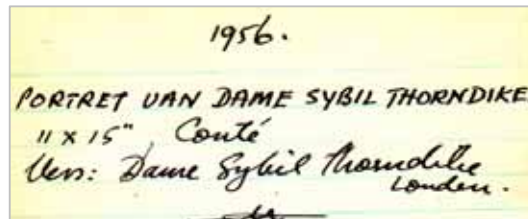 1956.
PORTRET VAN DAME SYBIL THORNDIKE
11 x 15" Conté
Vers: Dame Sybil Thorndike
Londen.